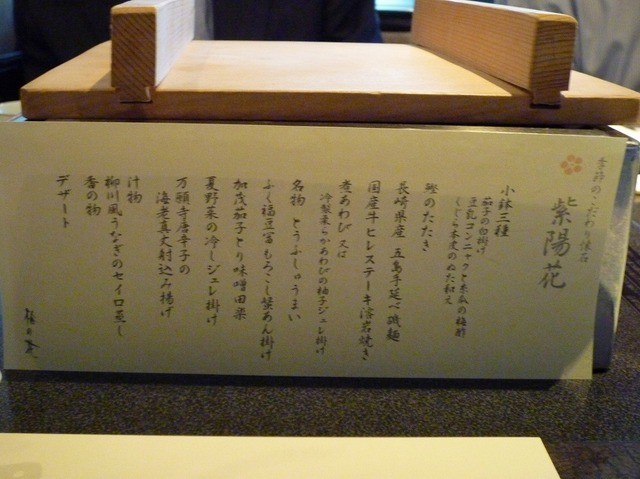 季節のこだわり懐石
紫陽花
小鉢三種
茄子の白掛け
豆乳コンニャクと糸瓜の梅酢
くじら本皮のぬた和え
鰹のたたき
長崎県産 五島手延べ磯麺
国産牛ヒレステーキ溶岩焼き
煮あわび 又は
冷製柔らかあわびの柚子ジュレ掛け
名物 とうふしゅうまい
ふく福豆冨もろこし蟹あん掛け
加茂茄子とり味噌田楽
夏野菜の冷しジュレ掛け
万願寺唐辛子の
海老真丈射込み揚げ
汁物
柳川風うなぎのセイロ蒸し
香の物
デザート